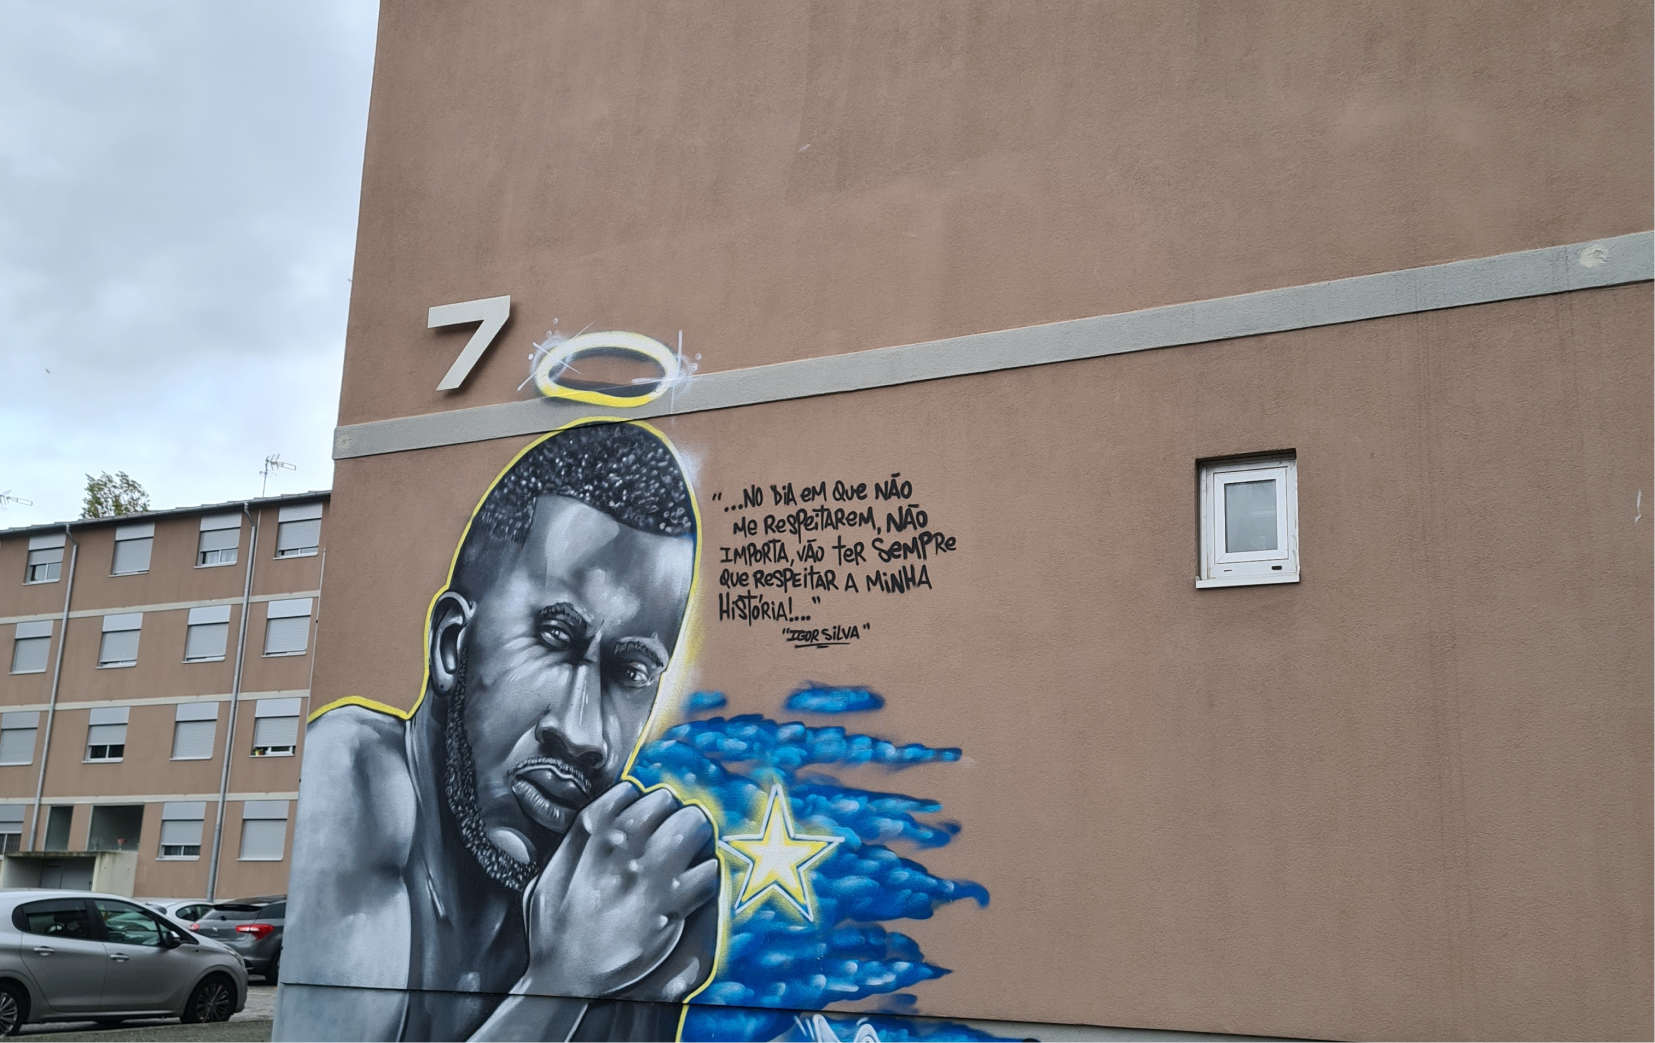 7
"...NO DiA em Que NÃO
me ResPeitARem, NÃO
IMPORTA, VÃO teR SemPRe
Que ResPEitAR A MiNHA
HiStóRiA!...."
"IGOR SiLVA"